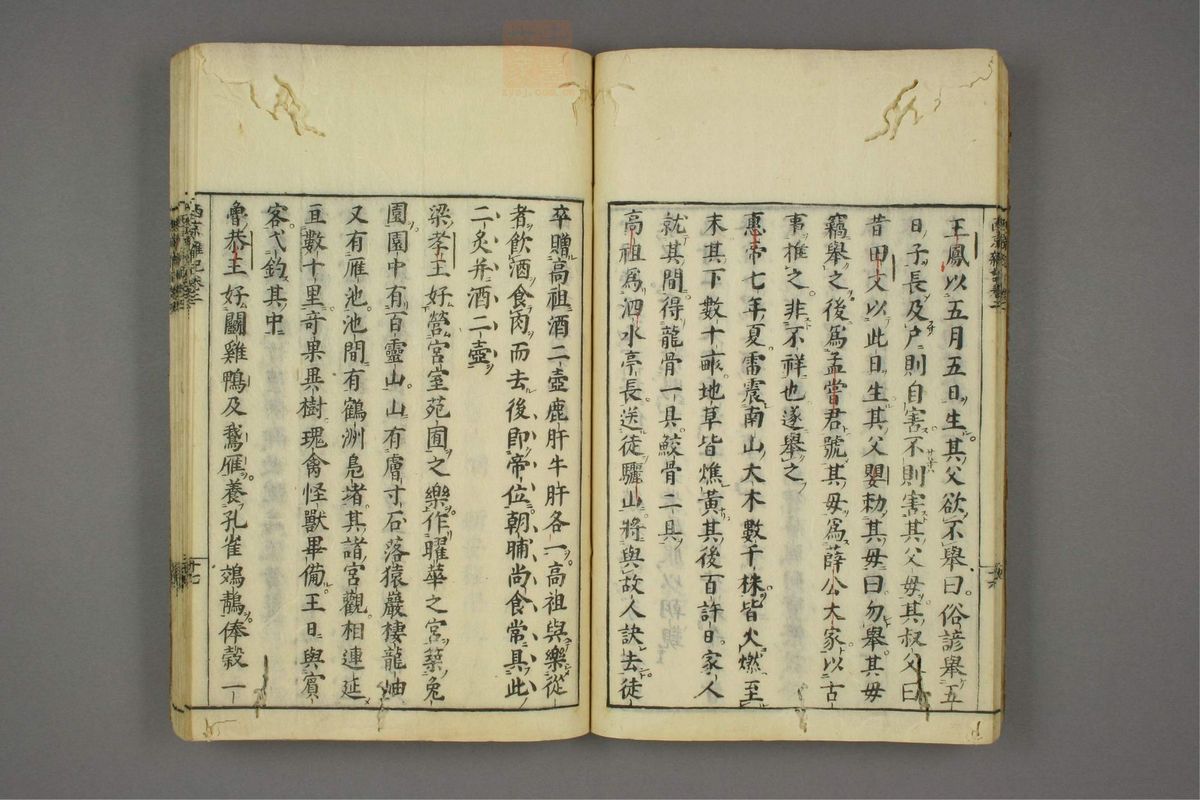 王鳳以五月五日生其父欲不舉曰俗諺舉五
日子長及户則自害不則害其父母其叔父曰
昔田文以此日生其父嬰勑其母曰勿舉其母
竊舉之後爲孟嘗君號其母爲薛公大家以古
事推之非不祥也遂舉之
惠帝七年夏雷震南山大木數千株皆火燃至
末其下數十畝地草皆燋黃其後百許日家人
就其間得龍骨一具鮫骨二具
高祖爲泗水亭長送徒驪山將與故人訣去徒
卒贈高祖酒二壺鹿肝牛肝各一高祖與樂從
者飲酒食肉而去後即帝位朝晡尚食常具此
二炙并酒二壺
梁孝王好營宮室苑囿之樂作曜華之宮築兔
園園中有百靈山山有膚寸石落猿巖棲龍岫
又有雁池池間有鶴洲鳧渚其諸宮觀相連延
亘數十里奇果異樹瑰禽怪獸畢備王日與賓
客弋釣其中
魯恭王好鬪雞鴨及鵞雁養孔雀鵁鶄俸穀一
西京雜記卷二